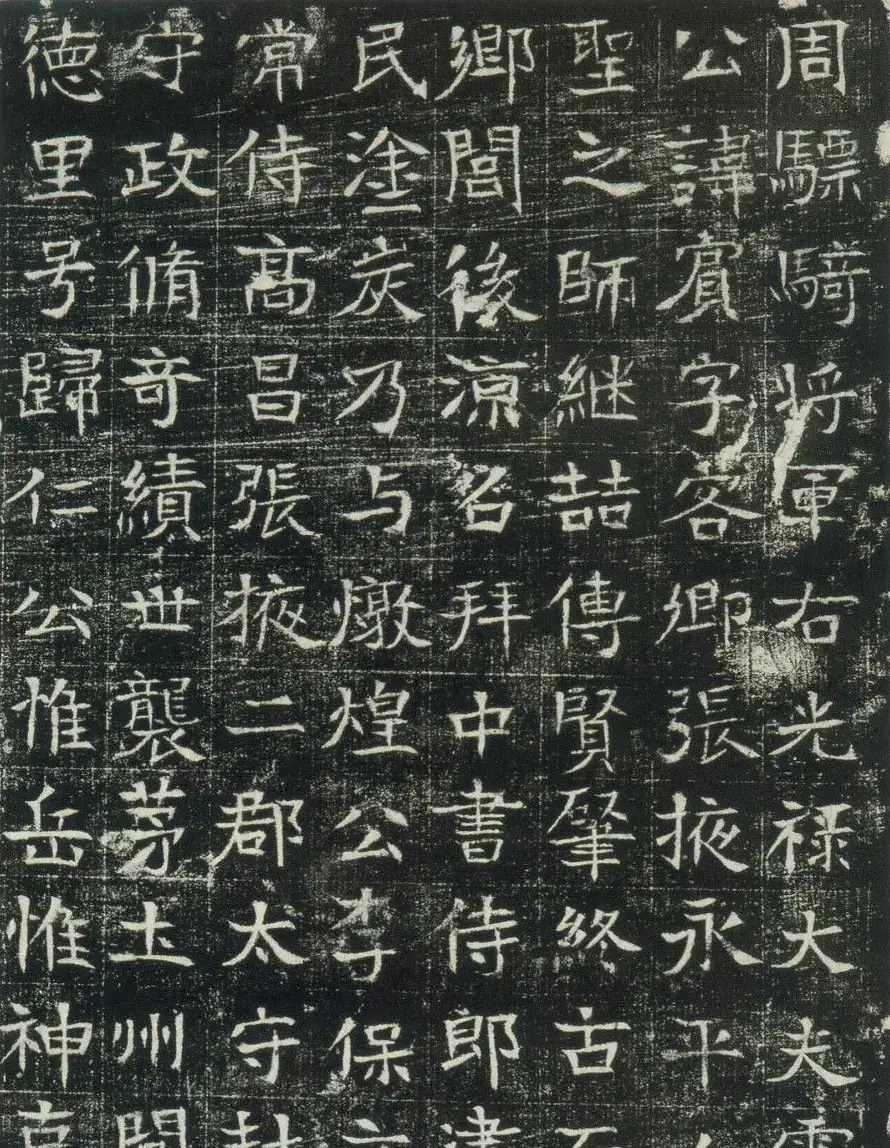 周驃騎将軍右光禄大夫雲
公諱賔字客卿張掖永平
聖之師継喆傳賢肇終古
鄉閭後涼召拜中書侍郎
民塗炭乃与燉煌公李保
常侍髙昌張掖二郡太守封
守政脩奇績世襲茅土州閭
徳里号歸仁公惟岳惟神